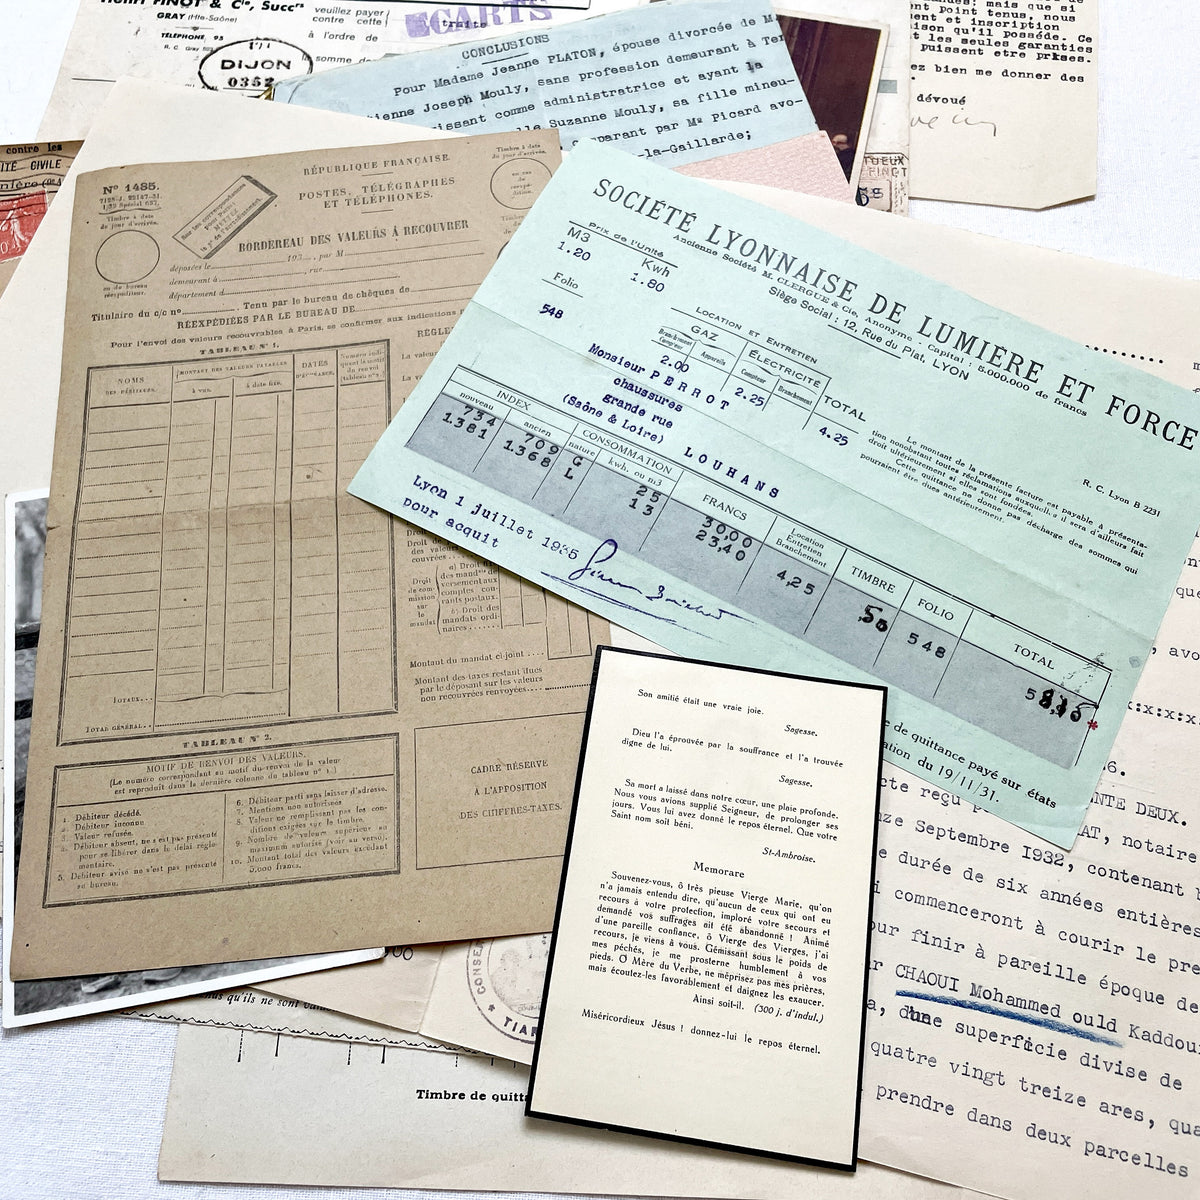 Henri FINOT & Cie, Succrs
GRAY (Hte-Saône)
TÉLÉPHONE 93
veuillez payer
contre cette
traite
à l'ordre de
somme de
ECARTS
DIJON
0352
CONCLUSIONS
Pour Madame Jeanne PLATON, épouse divorcée de M
ienne Joseph Mouly, sans profession demeurant à Ter
issant comme administratrice et ayant la
lle Suzanne Mouly, sa fille mineu-
comparant par Me Picard avo-
-la-Gaillarde;
point tenus, nous
ment et inscription
son qu'il possède. Ce
t les seules garanties
puissent etre prises.
ez bien me donner des
dévoué
contre les
ITÉ CIVILE
RÉPUBLIQUE FRANÇAISE.
POSTES, TÉLÉGRAPHES
ET TÉLÉPHONES.
N° 1485.
Timbre à date
du jour d'arrivée.
Timbre à date
de jour d'arrivée.
en cas
de
réexpé-
dition.
ou du bureau
réexpéditeur.
BORDEREAU DES VALEURS À RECOUVRER
déposées le 193 , par M
demeurant à , rue
département d
Titulaire du c/c n° , Tenu par le bureau de chèques de
RÉEXPÉDIÉES PAR LE BUREAU DE
Pour l'envoi des valeurs recouvrables à Paris, se conformer aux indications
TABLEAU N° 1.
NOMS
DES DÉBITEURS.
MONTANT DES VALEURS PAYABLES
à vue.
à date fixe.
DATES
D'ÉCHÉANCE.
Numéro indi-
quant le motif
du renvoi
(tableau n° 2).
TOTAUX
TOTAL GÉNÉRAL
Montant du mandat ci-joint
Montant des taxes restant dues
par le déposant sur les valeurs
non recouvrées renvoyées
TABLEAU N° 2.
MOTIF DE RENVOI DES VALEURS.
(Le numéro correspondant au motif du renvoi de la valeur
est reproduit dans la dernière colonne du tableau n° 1.)
1. Débiteur décédé.
2. Débiteur inconnu
3. Valeur refusée.
4. Débiteur absent, ne s'est pas présenté
pour se libérer dans le délai régle-
mentaire.
5. Débiteur avisé ne s'est pas présenté
au bureau.
6. Débiteur parti sans laisser d'adresse.
7. Mentions non autorisées
8. Valeur ne remplissant pas les con-
ditions exigées sur le timbre.
9. Nombre de valeurs supérieur au
maximum autorisé (voir au verso).
10. Montant total des valeurs excédant
5.000 francs.
CADRE RÉSERVÉ
À L'APPOSITION
DES CHIFFRES-TAXES.
SOCIÉTÉ LYONNAISE DE LUMIÈRE ET FORCE
Ancienne Société M. CLERGUE & Cie, Anonyme - Capital : 5.000.000 de francs
Siège Social : 12, Rue du Plat, LYON
Prix de l'Unité
M3 Kwh
1.20 1.80
Folio
548
LOCATION ET ENTRETIEN
GAZ
ÉLECTRICITÉ
TOTAL
Branchement
Compteur
Appareils
Compteur
Branchement
2.00
2.25
4.25
Monsieur PERROT
chaussures
grande rue
(Saône & Loire)
LOUHANS
R. C. Lyon B 2231
Le montant de la présente facture est payable à présenta-
tion nonobstant toutes réclamations auxquelles il sera d'ailleurs fait
droit ultérieurement si elles sont fondées.
Cette quittance ne donne pas décharge des sommes qui
pourraient être dues antérieurement.
INDEX
nouveau
ancien
nature
CONSOMMATION
kwh. ou m3
FRANCS
Location
Entretien
Branchement
TIMBRE
FOLIO
TOTAL
734 709 G 25 30,00
1.381 1.368 L 13 23,40 4,25 ,50 548
Lyon 1 juillet 1935
pour acquit
e de quittance payé sur états
ation du 19/11/31.
Son amitié était une vraie joie.
Sagesse.
Dieu l'a éprouvée par la souffrance et l'a trouvée
digne de lui.
Sagesse.
Sa mort a laissé dans notre cœur, une plaie profonde.
Nous vous avions supplié Seigneur, de prolonger ses
jours. Vous lui avez donné le repos éternel. Que votre
Saint nom soit béni.
St-Ambroise.
Memorare
Souvenez-vous, ô très pieuse Vierge Marie, qu'on
n'a jamais entendu dire, qu'aucun de ceux qui ont eu
recours à votre protection, imploré votre secours et
demandé vos suffrages ait été abandonné ! Animé
d'une pareille confiance, ô Vierge des Vierges, j'ai
recours, je viens à vous. Gémissant sous le poids de
mes péchés, je me prosterne humblement à vos
pieds. O Mère du Verbe, ne méprisez pas mes prières,
mais écoutez-les favorablement et daignez les exaucer.
Ainsi soit-il. (300 j. d'indul.)
Miséricordieux Jésus ! donnez-lui le repos éternel.
:x:x:x:
6.
cte reçu p
NTE DEUX.
AT, notaire
nze Septembre 1932, contenant
e durée de six années entières
i commenceront à courir le pre
our finir à pareille époque de
r CHAOUI Mohammed ould Kaddou
a, dune superficie divise de
quatre vingt treize ares, qua
prendre dans deux parcelles
nus qu'ils ne sont
CONSE
TIAR
Timbre de quitta